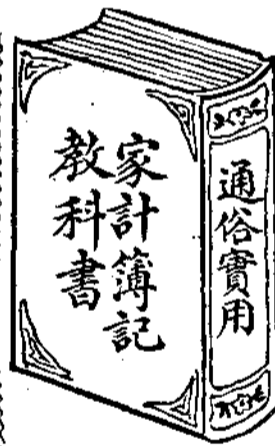 通俗實用
家計簿記
教科書